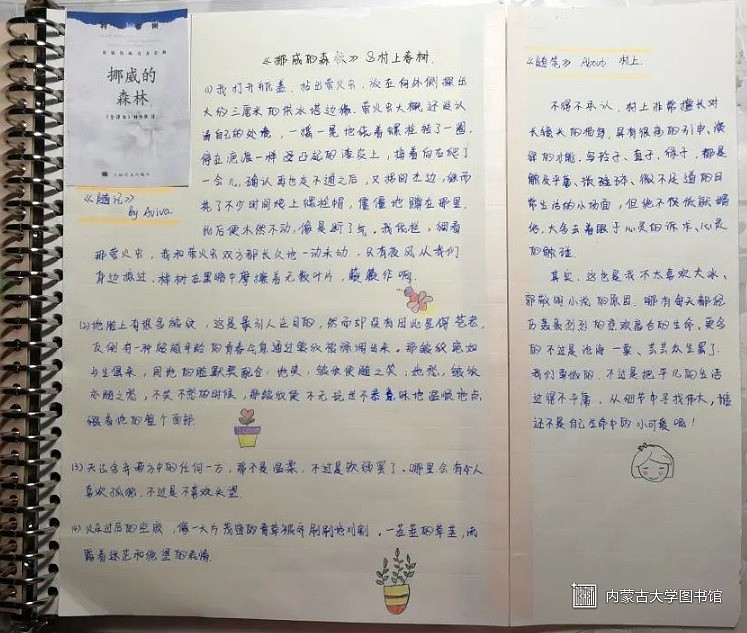 挪威的
森林
《随记》
by Aviva.
《挪威的森林》&村上春树.
(1)我打开瓶盖，拈出萤火虫，放在向外侧探出
大约三厘米的供水塔边缘。萤火虫大概还没认
清自己的处境，一摇一晃地绕着螺栓转了一圈，
停在疤痕一样凸起的漆皮上，接着向右爬了
一会儿，确认再也走不通之后，又拐回左边，继而
花了不少时间爬上螺栓帽，僵僵地蹲在那里，
此后便木然不动，像是断了气。我凭栏，细看
那萤火虫，我和萤火虫双方都长久地一动未动，只有夜风从我们
身边掠过。榉树在黑暗中摩擦着无数叶片，簌簌作响。
(2)她脸上有很多皱纹，这是最引人注目的，然而却没有因此显得苍老，
反倒有一种超越年龄的青春气息通过皱纹被强调出来。那皱纹宛如
与生俱来，同她的脸默契配合：她笑，皱纹便随之笑，她愁，皱纹
亦随之愁，不笑不愁的时候，那皱纹便不无玩世不恭意味地温顺地点
缀着她的整个面部
(3)无法舍弃两方中的任何一方，那不是温柔，不过是软弱罢了。哪里会有人
喜欢孤独，不过是不喜欢失望.
(4)火车过后的空寂，像一大片茂密的青草被齐刷刷地刈割，一茬茬的草茎，流
露着迷茫和绝望的表情.
《随笔》 About 村上.
不得不承认，村上非常擅长对
长镜头的描写，具有很高的引申、演
绎的才能。与玲子、直子、绿子，都是
触及平庸、很琐碎、微不足道的日
常生活的小场面，但他不仅依赖描
绘，大多去着眼于心灵的诉求、心灵
的触碰
其实，这也是我不太喜欢大冰、
郭敬明小说的原因。哪有每天都经
历轰轰烈烈的悲欢离合的生命，更多
的不过是沧海一粟、芸芸众生罢了.
我们要做的，不过是把平凡的生活
过得不平庸，从细节中寻找伟大，谁
还不是自己生命中的小可爱呢！
内蒙古大学图书馆